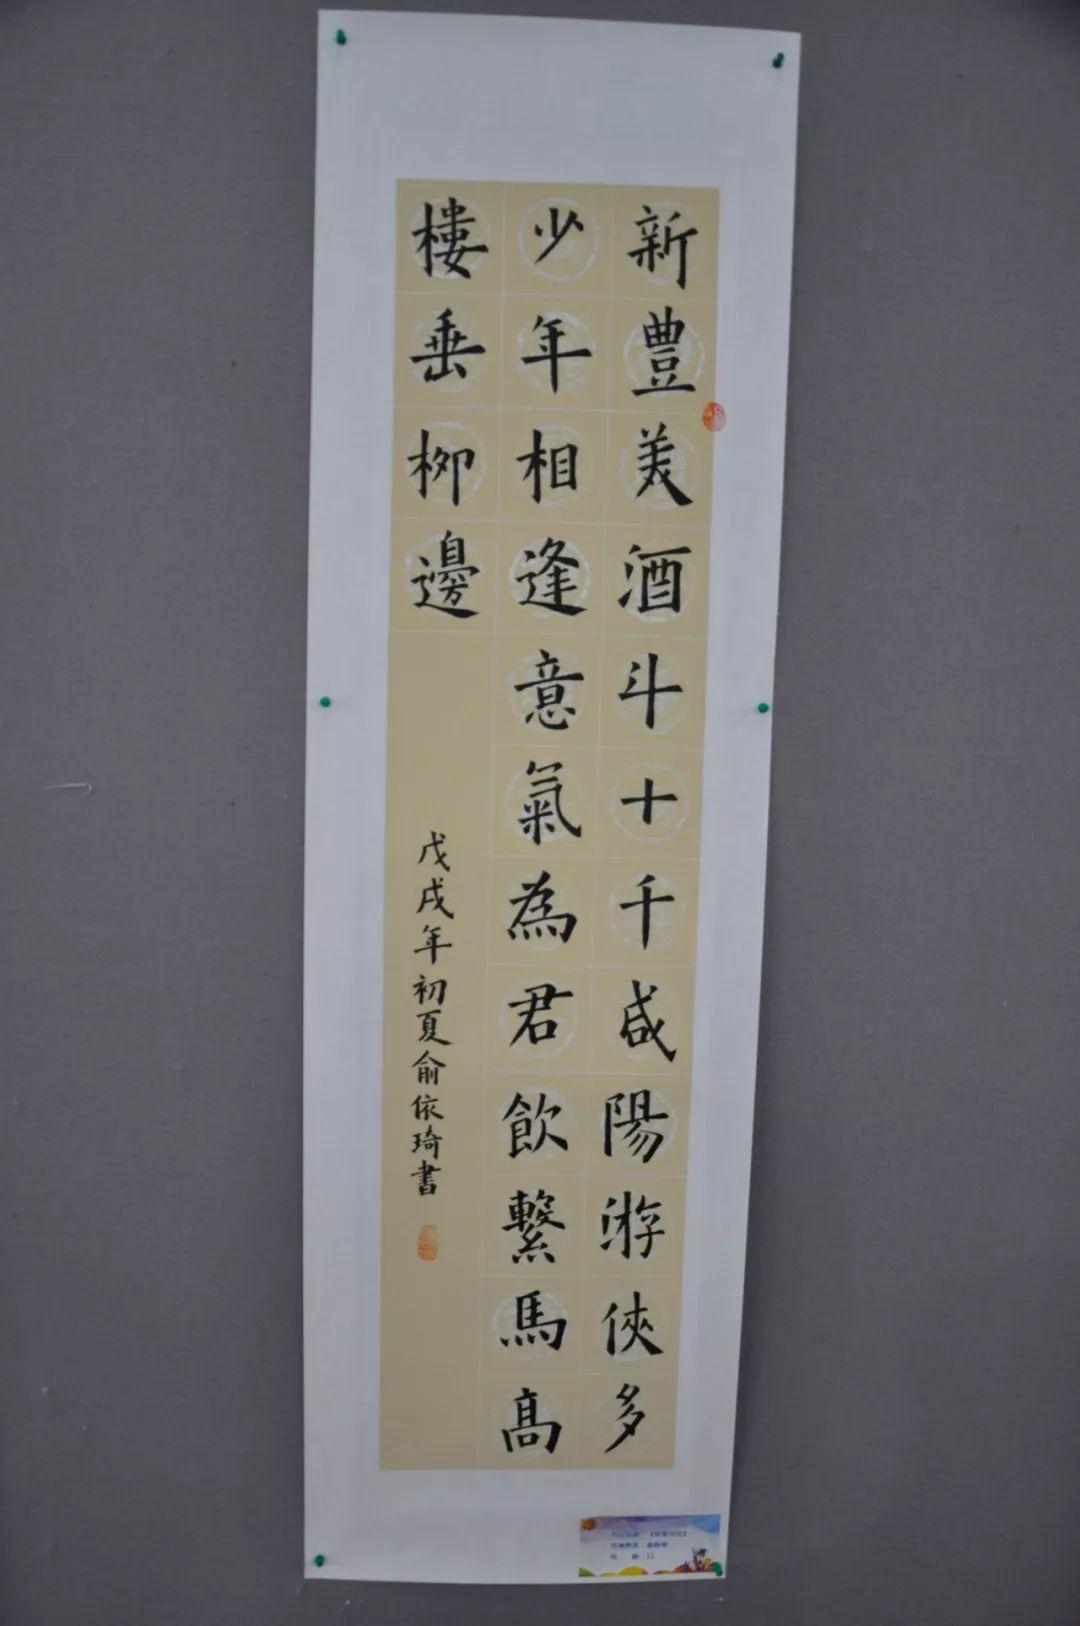 新豊美酒斗十千咸陽游俠多
少年相逢意氣為君飲繫馬高
樓垂柳邊
戊戌年初夏俞依琦書